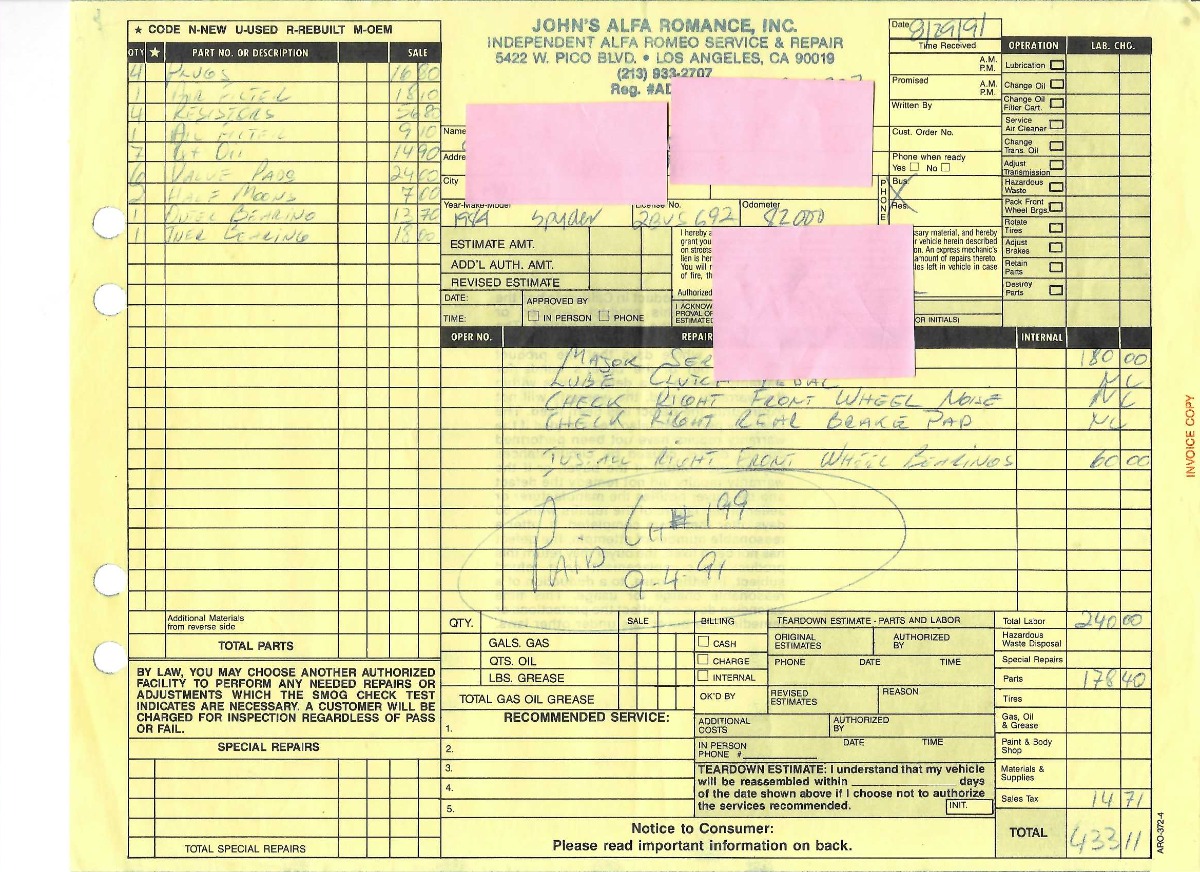 ★ CODE N-NEW U-USED R-REBUILT M-OEM
QTY ★ PART NO. OR DESCRIPTION SALE
4 PLUGS 16 80
1 AIR FILTER 18 10
4 RESISTORS 56 80
1 OIL FILTER 9 10
7 Qt OIL 14 90
6 VALVE PADS 24 00
2 HALF MOONS 7 00
1 OUTER BEARING 13 70
1 INER BEARING 18 00
Additional Materials
from reverse side
TOTAL PARTS
BY LAW, YOU MAY CHOOSE ANOTHER AUTHORIZED
FACILITY TO PERFORM ANY NEEDED REPAIRS OR
ADJUSTMENTS WHICH THE SMOG CHECK TEST
INDICATES ARE NECESSARY. A CUSTOMER WILL BE
CHARGED FOR INSPECTION REGARDLESS OF PASS
OR FAIL.
SPECIAL REPAIRS
TOTAL SPECIAL REPAIRS
JOHN'S ALFA ROMANCE, INC.
INDEPENDENT ALFA ROMEO SERVICE & REPAIR
5422 W. PICO BLVD. • LOS ANGELES, CA 90019
(213) 933-2707
Reg. #AD
Name
Addre
City
Year-Make-Model License No. Odometer
1984 Spyder 2BUS692 82000
PHONE
Bus.
Res.
Date 8/29/91
Time Received
A.M.
P.M.
Promised
A.M.
P.M.
Written By
Cust. Order No.
Phone when ready
Yes No
OPERATION LAB. CHG.
Lubrication
Change Oil
Change Oil
Filter Cart.
Service
Air Cleaner
Change
Trans. Oil
Adjust
Transmission
Hazardous
Waste
Pack Front
Wheel Brgs.
Rotate
Tires
Adjust
Brakes
Retain
Parts
Destroy
Parts
ESTIMATE AMT.
ADD'L AUTH. AMT.
REVISED ESTIMATE
DATE:
APPROVED BY
TIME:
IN PERSON PHONE
I hereby a ssary material, and hereby
grant you r vehicle herein described
on streets on. An express mechanic's
lien is her amount of repairs thereto.
You will r les left in vehicle in case
of fire, th
Authorized
I ACKNOW
PROVAL OF
ESTIMATE (OR INITIALS)
OPER NO. REPAIR INTERNAL
MAJOR SER 180 00
LUBE CLUTCH PEDAL NC
CHECK RIGHT FRONT WHEEL NOISE NC
CHECK RIGHT REAR BRAKE PAD NC
INSTALL RIGHT FRONT WHEEL BEARINGS 60 00
PAID CH# 199
9-4-91
QTY. SALE
GALS. GAS
QTS. OIL
LBS. GREASE
TOTAL GAS OIL GREASE
RECOMMENDED SERVICE:
1.
2.
3.
4.
5.
BILLING
CASH
CHARGE
INTERNAL
OK'D BY
TEARDOWN ESTIMATE - PARTS AND LABOR
ORIGINAL
ESTIMATES
AUTHORIZED
BY
PHONE DATE TIME
REVISED
ESTIMATES
REASON
ADDITIONAL
COSTS
AUTHORIZED
BY
IN PERSON
PHONE #
DATE TIME
TEARDOWN ESTIMATE: I understand that my vehicle
will be reassembled within days
of the date shown above if I choose not to authorize
the services recommended. INIT.
Notice to Consumer:
Please read important information on back.
Total Labor 240 00
Hazardous
Waste Disposal
Special Repairs
Parts 178 40
Tires
Gas, Oil
& Grease
Paint & Body
Shop
Materials &
Supplies
Sales Tax 14 71
TOTAL 433 11
INVOICE COPY
ARO-372-4